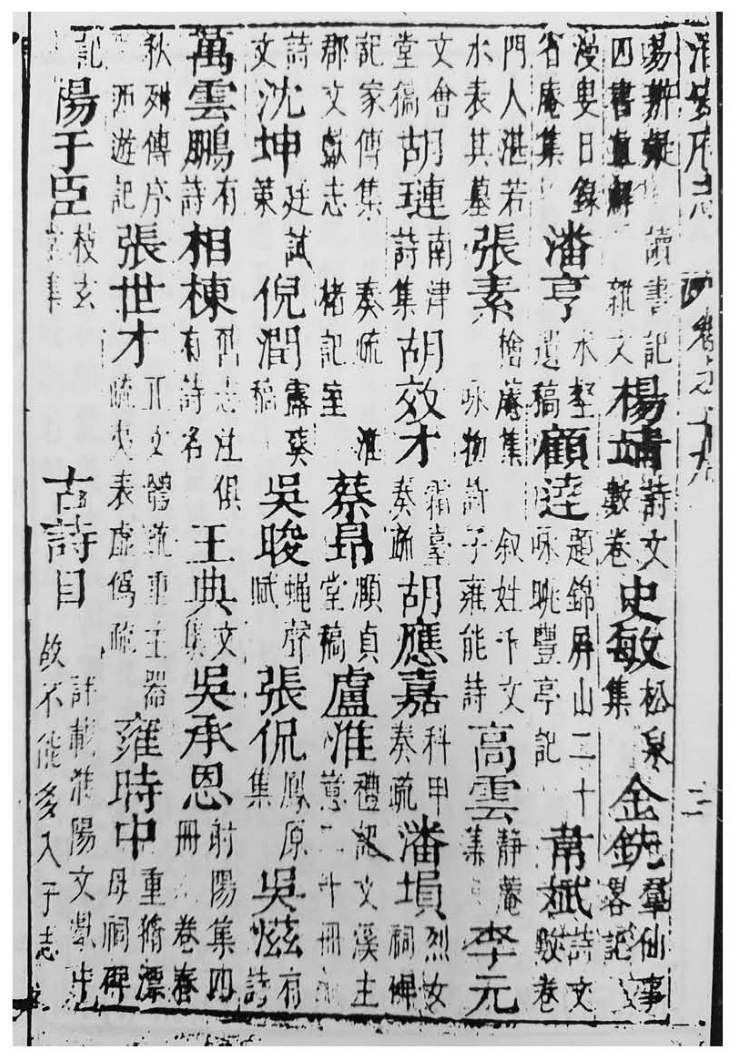 淮安府志 卷之十九 二
易辨疑 讀書記 四書直解 雜文 楊靖 詩文數卷 史敏 松泉集 金銑 羣仙事畧記
漫叟日錄省庵集 潘亨 水壑遺稿 顧逵 題錦屏山二十咏眺豐亭記 韋斌 詩文數卷
門人湛若水表其墓 張素 檜菴集 叙姓千文 咏物詩 子雍能詩 高雲 靜菴集 李元
文會堂稿 胡璉 南津詩集 胡效才 霜臺奏疏 胡應嘉 科甲奏疏 潘塤 烈女祠碑
記家傳集 奏疏 淮郡文獻志 楮記室 蔡昂 頤貞堂稿 盧淮 禮記文溪主意二十冊
詩文 沈坤 廷試策 倪潤 露葵稿 吳晙 蝇聲賦 張侃 鳳原集 吳 有詩
萬雲鵬 有詩 相棟 志注俱有詩名 王典 文集 吳承恩 射陽集四冊 卷春
秋列傳序 西遊記 張世才 正文體疏重士器疏 表虛偽疏 雍時中 重脩漂母祠碑
記 陽于臣 枝玄堂集 古詩目 詳載淮陽文獻中故不能多入于志